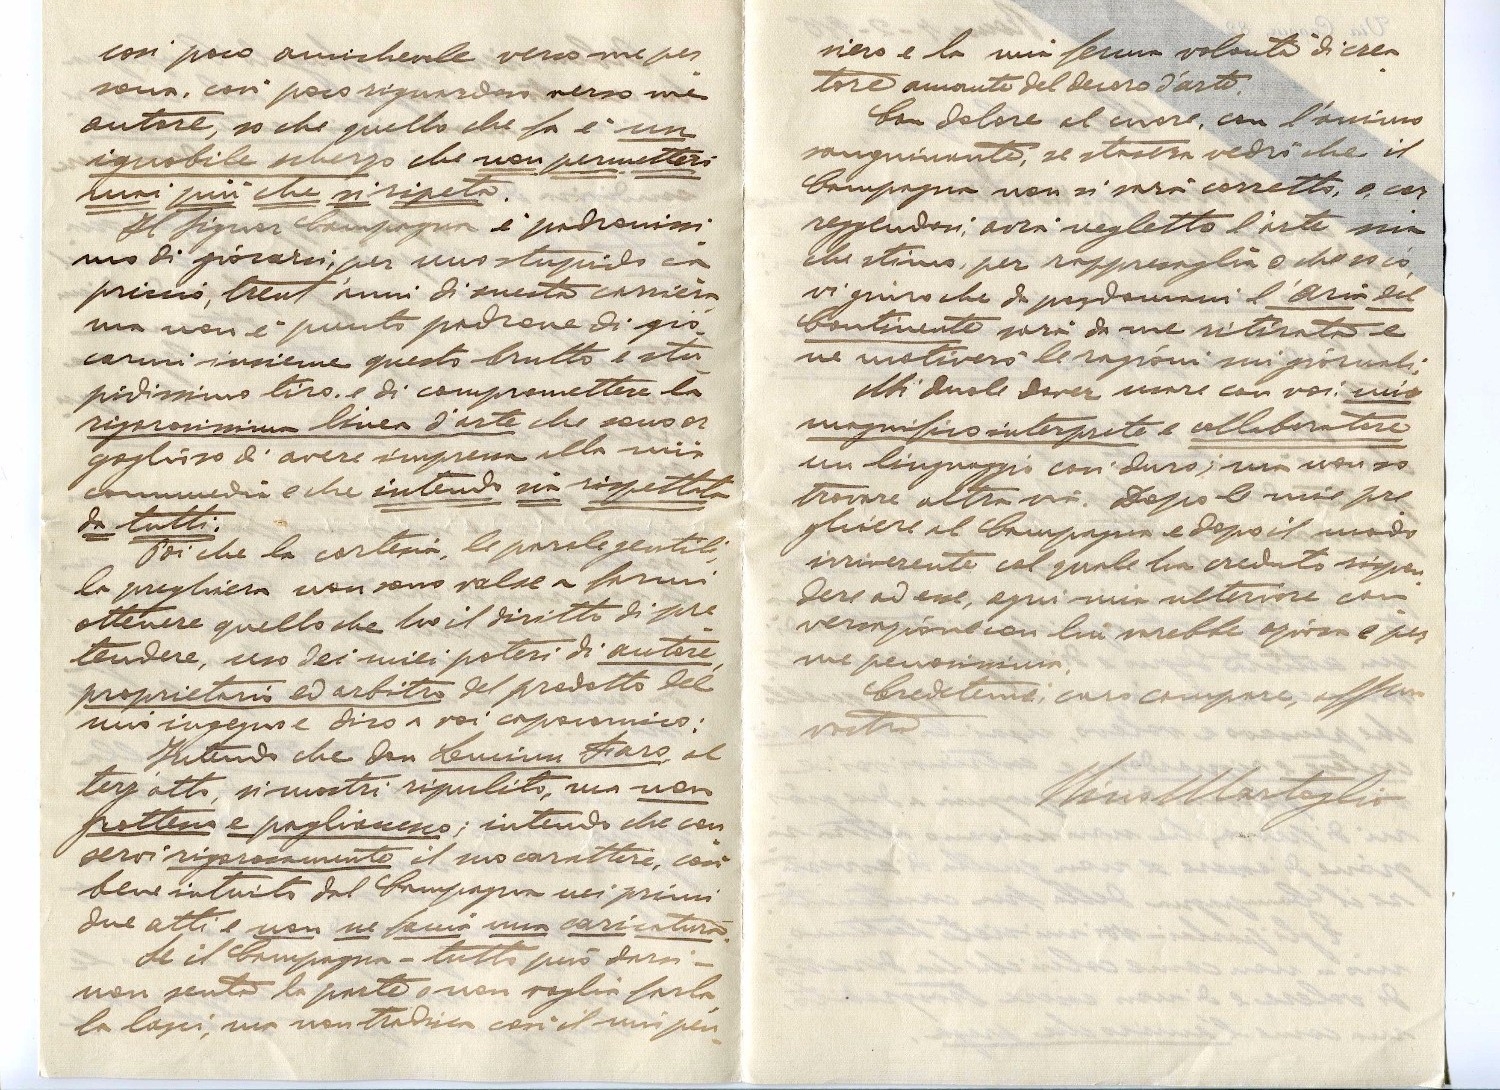 così poco amichevole verso me per
sona, così poco riguardoso verso me
autore, so che quello che fa è un
ignobile scherzo che non permetterò
mai più che si ripeta.
Il signor Campagna è padronissi
mo di giocarsi, per uno stupido ca
priccio, trent'anni di onesta carriera
ma non è punto padrone di gio-
carmi insieme questo brutto e stu
pidissimo tiro e di compromettere la
rigorosissima linea d'arte che sono or
goglioso di avere impressa alla mia
commedia e che intendo sia rispettata
da tutti.
Poi che la cortesia, le parole gentili,
la preghiera non sono valse a farmi
ottenere quello che ho il diritto di pre
tendere, uso dei miei poteri di autore,
proprietario ed arbitro del prodotto del
mio ingegno e dico a voi capocomico:
Intendo che don Liccinnu Faro, al
terz'atto, si mostri ripulito, ma non
grottesco e pagliaccesco; intendo che con
servi rigorosamente il suo carattere, così
bene intuito dal Campagna nei primi
due atti e non ne faccia una caricatura.
Se il Campagna – tutto può darsi –
non sente la parte o non voglia farla,
la lasci, ma non tradisca così il mio pen-
siero e la mia ferma volontà di crea
tore amante del decoro d'arte.
Con dolore al cuore, con l'animo
sanguinante, se stasera vedrò che il
Campagna non si sarà corretto, o, cor
reggendosi, avrà negletto l'arte sua
che stimo, per rappresaglia o che so io,
vi giuro che da posdomani l'Aria del
Continente sarà da me ritirata e
ne motiverò le ragioni sui giornali.
Mi duole dover usare con voi, mio
magnifico interprete e collaboratore
un linguaggio così duro; ma non so
trovare altra via. Dopo le mie pre
ghiere al Campagna e dopo il modo
irriverente col quale ha creduto rispon
dere ad esse, ogni mia ulteriore con
versazione con lui sarebbe oziosa e per
me penosissima.
Credetemi, caro compare, aff.mo
vostro
Nino Martoglio